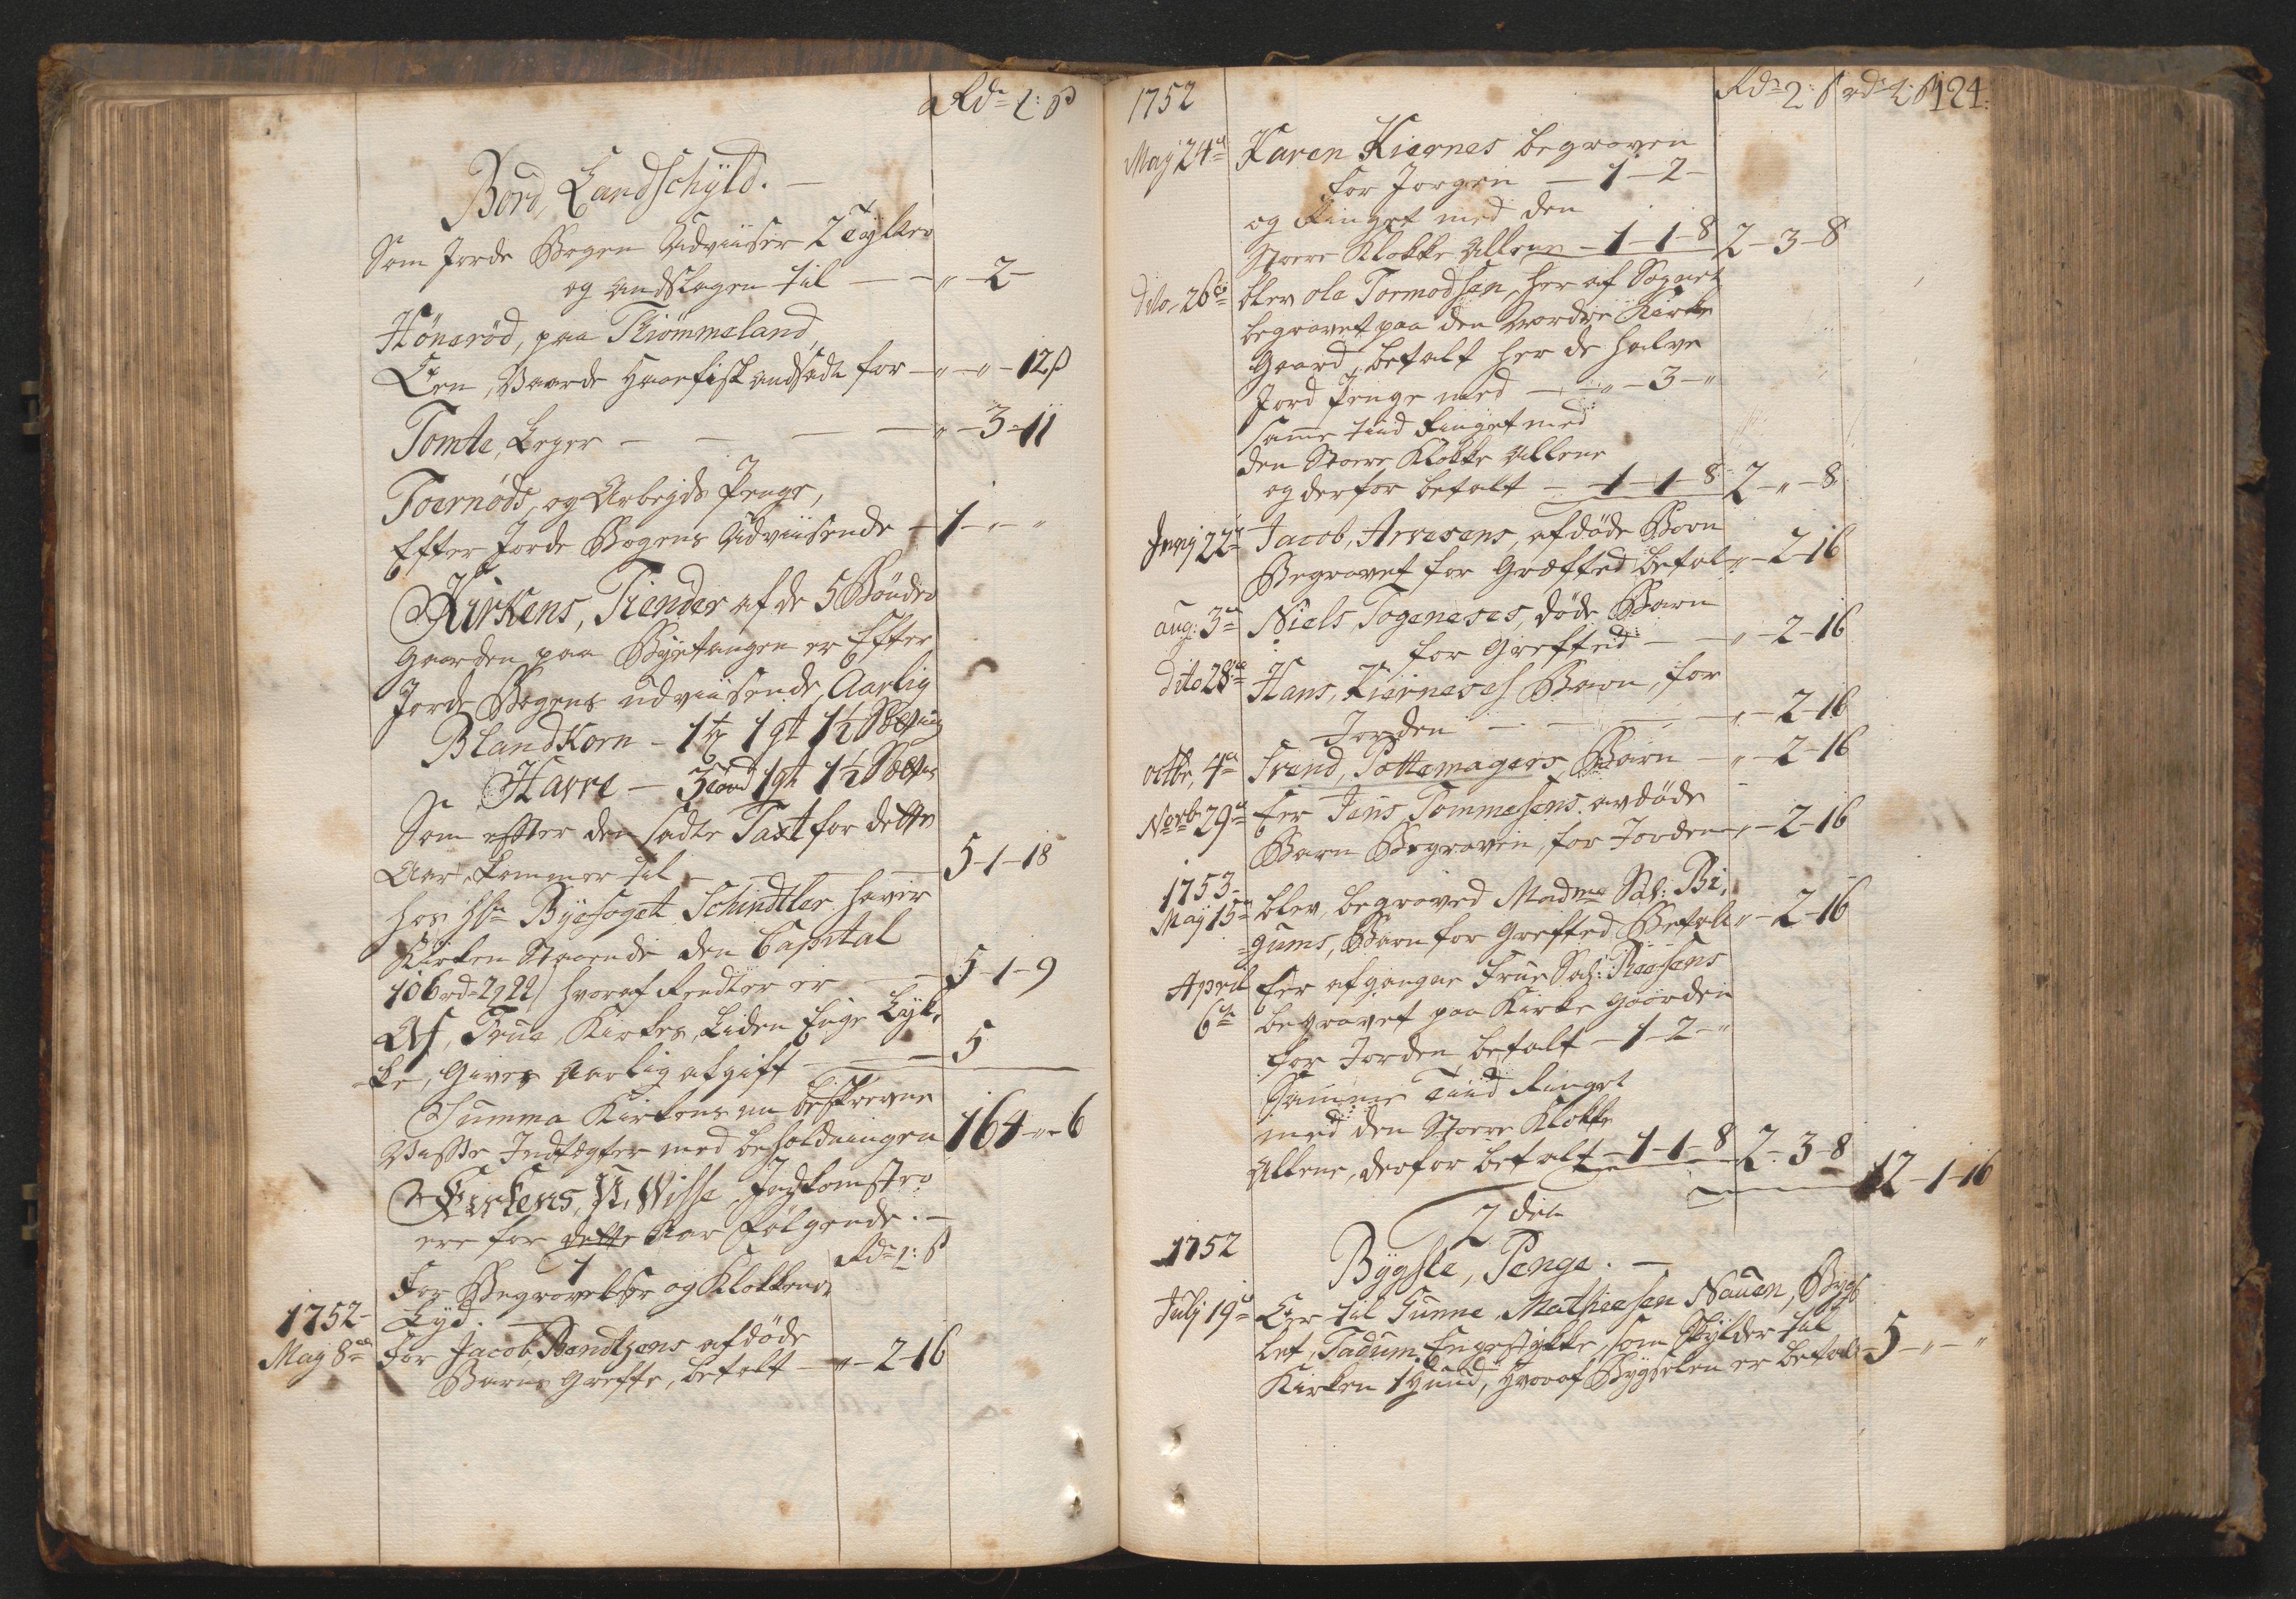 Rdr 2: ß
Bord, Landschyld.
Som Jorde Bogen Udviiser 2 Tylter
og andslagen til — „ — 2 —
Hönerød, paa Tiømmeland,
Een, Vaarde Haarfisk andsadt for — „ — „ — 12 ß
Tomte, Leger — — — — „ — 3 — 11
Toernøds, og Arbejds Penge,
Efter Jorde Bogens Udviisende — 1 — „ — „
Kirkens, Tiender af de 5 Bönder
Gaarden paa Byetangen er Efter
Jorde Bogens udviisende, Aarlig
BlandKorn — 1 tø 1 qt 1½ Sætting
Havre — 3 tønd 1 qt 1½ Sætting
Som efter den sadte Taxt for dette
Aar, kommer til — — — 5 — 1 — 18
Hos Hr Byefoget Schindtler haver
Kirken Staaende den Capital
106 rd 2 q 22 / hvoraf Rendter er — 5 — 1 — 9
Af, True, Kirkes, Liden Enge Lyk,
-ke, Gives Aarlig afgift — 5
Summa Kirkens nu beskrevne
Visse Indtegter med beholdningen 164 — „ — 6
Kirkens, U, Wisse, Indkomster
ere for dette Aar følgende. —
Rdr 2: ß
1
For Begravelser og Klokkens
1752 — Lyd.
May 8de For Jacob, Bendtzens afdøde
Barns Greffte, betalt — „ — 2 — 16
1752 Rdr 2: ß rdr 2: ß 124:
May 24de Karen Kiernes begraven
for Jorgen — 1 — 2 —
og Ringet med den
Stoere Klokke Allene — 1 — 1 — 8 2 — 3 — 8
Dito 26de blev ole Tormodsen, her af Sognet
begravet paa den Nordre Kirke
Gaard, betalt her de halve
Jord Penge med — „ — 3 — „
samme tiid Ringet med
den Stoere Klokke Allene
og derfor betalt — 1 — 1 — 8 2 — „ — 8
Junj 22de Jacob, Arvesens, afdöde Born
Begravet for Græfted betal — „ — 2 — 16
aug: 3de Niels, Togeneses, döde Barn
for Grefted — „ — 2 — 16
Dito 28de Hans, Kiernesef Barn, for
Jorden — — — „ — 2 — 16
octbr, 4de Svend, Pottemagers, Barn — „ — 2 — 16
Norb 29de Eer Jens Tommesens avdöde
Barn Begraven, for Jorden — „ — 2 — 16
1753 —
May 15de blev, begraved Madme Sal: Bi,
-gums, Barn for Grefted Betalt „ — 2 — 16
April Eer afgangne Frue Sal: Reesens
6te begravet paa Kirke Gaarden
for Jorden betalt — 1 — 2 — „
Samme Tiid Ringet
med den Stoere Klokke
Allene, derfor betalt — 1 — 1 — 8 2 — 3 — 8
12 — 1 — 16
2den
1752 Bygsle, Penge. —
Julj 19de Eer til Gunne, Mathiesen Nauen, Bygs
let, Tadum Engestykke, som Skylder til
Kirken 1 Hund, Hvoraf Bygselen er betalt — 5 — „ — „